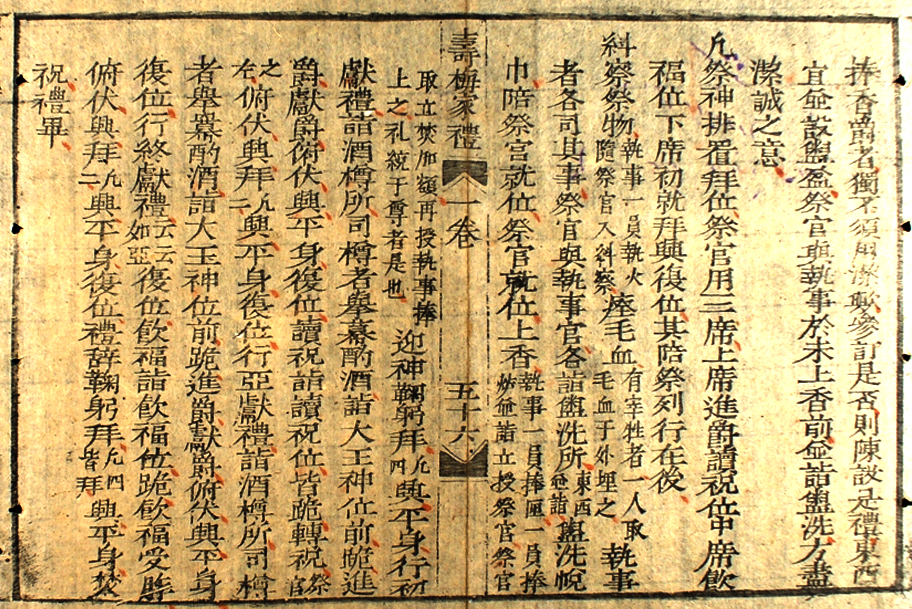 捧香爵者獨不須用潔歟參訂是否則陳設是禮東西
宜並設盥盆祭官與執事於未上香前並詣盥洗方盡
潔誠之意
凢祭神排置拜位祭官用三席上席進爵讀祝位中席飲
福位下席初就拜興復位其陪祭列行在後
糾察祭物執事一員執火隨祭官入糾察座毛血有宰牲者一人取毛血于外埋之執事
者各司其事祭官與執事官各詣盥洗所東西並詣盥洗帨
巾陪祭官就位祭官就位上香執事一員捧匣一員捧炉並詣立授祭官祭官
壽梅家禮 一卷 五十六
取立焚加額再授執事捧上之礼統于尊者是也迎神鞠躬拜凢四興平身行初
獻禮詣酒樽所司樽者舉幕酌酒詣大王神位前跪進
爵獻爵俯伏興平身復位讀祝詣讀祝位皆跪轉祝祭官
之左俯伏興拜凢二興平身復位行亞獻禮詣酒樽所司樽
者舉冪酌酒詣大王神位前跪進爵獻爵俯伏興平身
復位行終獻禮云云如亞獻復位飲福詣飲福位跪飲福受胙
俯伏興拜凢二興平身復位禮辞鞠躬拜凢四皆拜興平身焚
祝禮畢